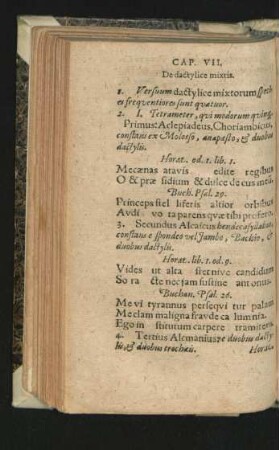 CAP. VII.
De dactylice mixtis.
1. Versuum dactylice mixtorum
es freqventiores sunt qvatuor.
2. I. Tetrameter, qvi modorum
Primus: Asclepiadeus, Choriambicus,
constans ex Molosso, anapæsto, & duobus
dactylis.
Horat. od. 1. lib. 1.
Mecænas atavis edite regibus
O & præ sidium & dulce decus meū.
Buch. Psal. 29.
Princeps stel liferis altior orbibus
Audi vota parens qvæ tibi
3. Secundus Alcaicus hendecasyllabus
constans e spondeo vel Jambo, Bachio, &
duobus dactylis.
Horat. lib. 1. od. 9.
Vides ut alta stet nive candidum
Sora cte nec jam sustine ant onus.
Buchan. Psal. 26.
Me vi tyrannus perseqvi tur palam
Me clam maligna fraude ca lumnia.
Ego in stitutum carpere tramitem
4. Tertius Alcmanius e duobus
lis, & duobus trochæis.